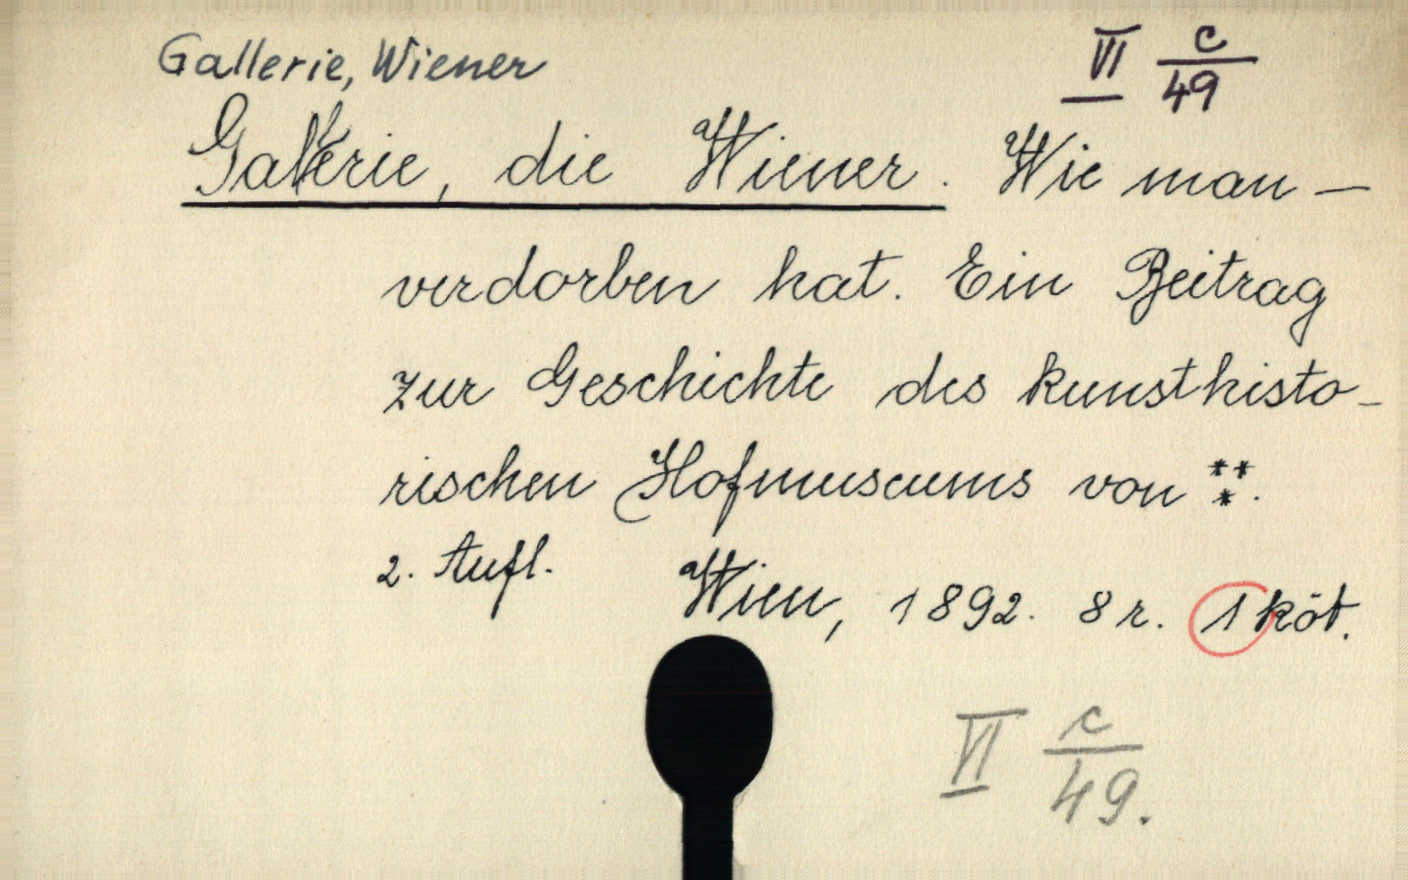 Gallerie, Wiener
VI c/49
Gallerie, die Wiener. Wie man —
verdorben hat. Ein Beitrag
zur Geschichte des kunsthisto-
rischen Hofmuseums von ***.
2. Aufl. Wien, 1892. 8 r. 1 köt.
VI c/49.